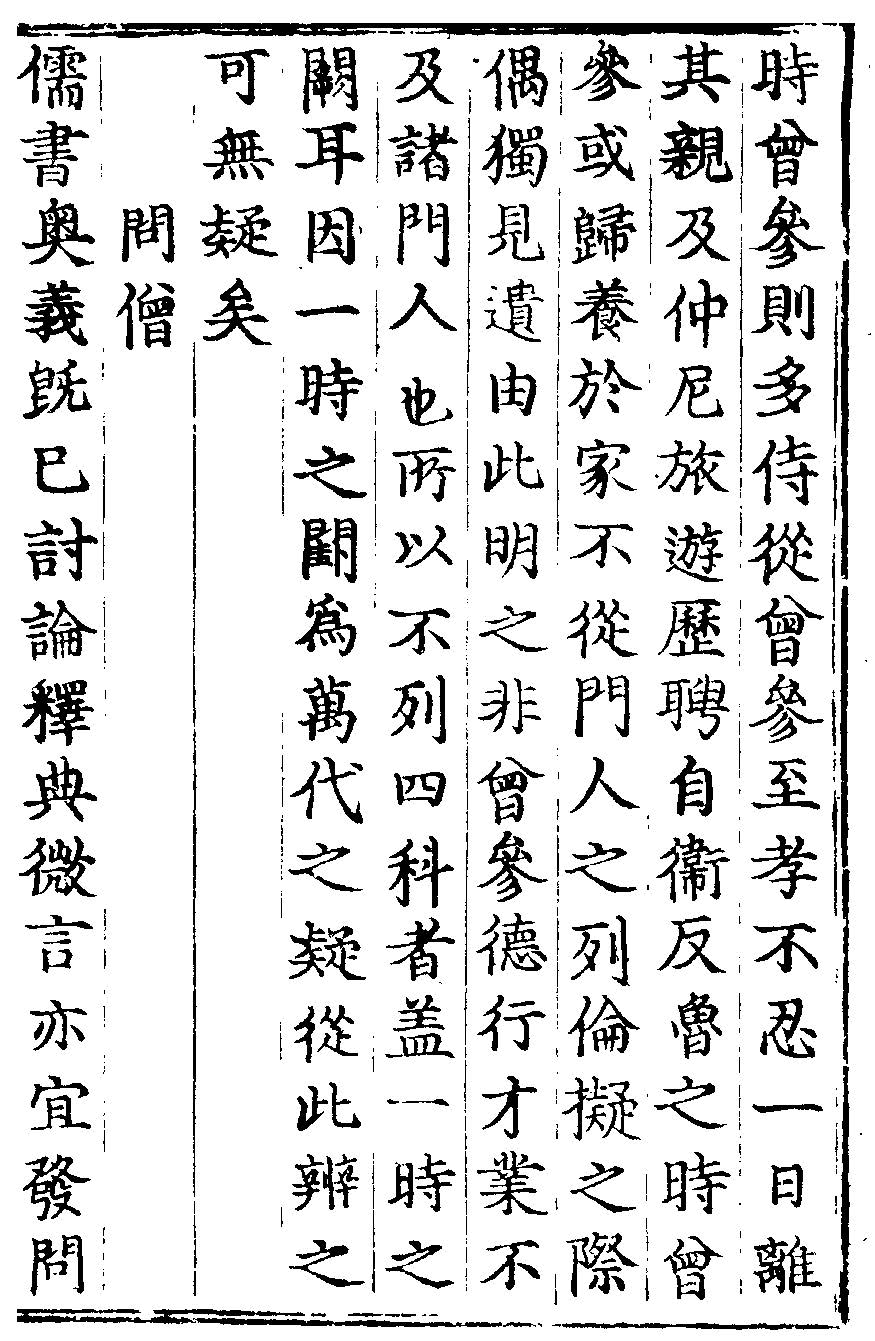 時曾參則多侍從曾參至孝不忍一日離
其親及仲尼旅遊歷聘自衞反魯之時曾
參或歸養於家不從門人之列倫擬之際
偶獨見遺由此明之非曾參德行才業不
及諸門人也所以不列四科者盖一時之
闕耳因一時之闕爲萬代之疑從此辨之
可無疑矣
問僧
儒書奥義旣巳討論釋典微言亦宜發問